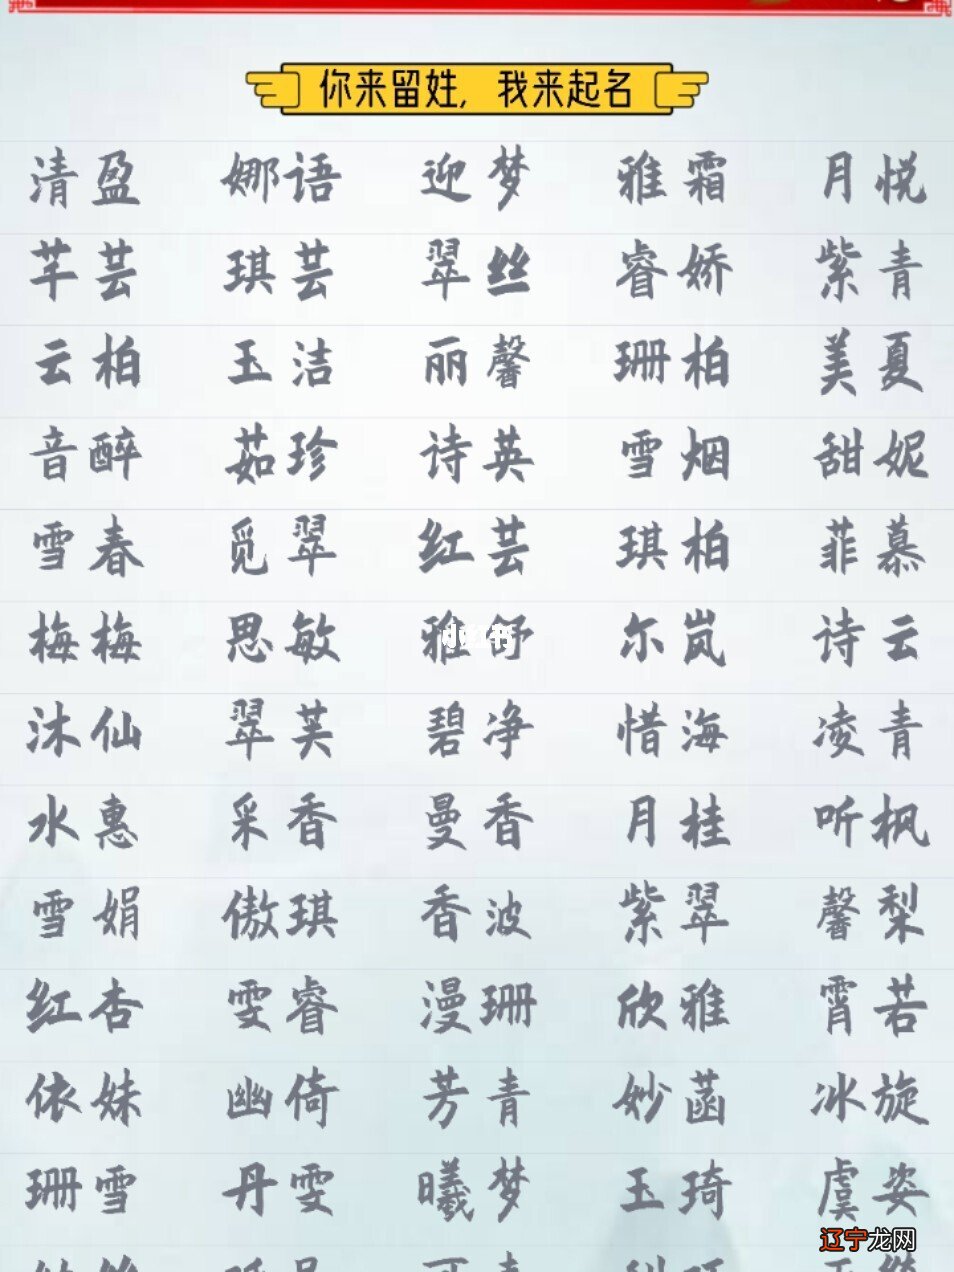 你来留姓，我来起名
清盈 娜语 迎梦 雅霜 月悦
芊芸 琪芸 翠丝 睿娇 紫青
云柏 玉洁 丽馨 珊柏 美夏
音醉 茹珍 诗英 雪烟 甜妮
雪春 觅翠 红芸 琪柏 菲慕
梅梅 思敏 雅舒 尔岚 诗云
小红书
沐仙 翠芙 碧净 惜海 凌青
水惠 采香 曼香 月桂 听枫
雪娟 傲琪 香波 紫翠 馨梨
红杏 雯睿 漫珊 欣雅 霄若
依妹 幽倚 芳青 妙菡 冰旋
珊雪 丹雯 曦梦 玉琦 虞姿
辽宁龙网